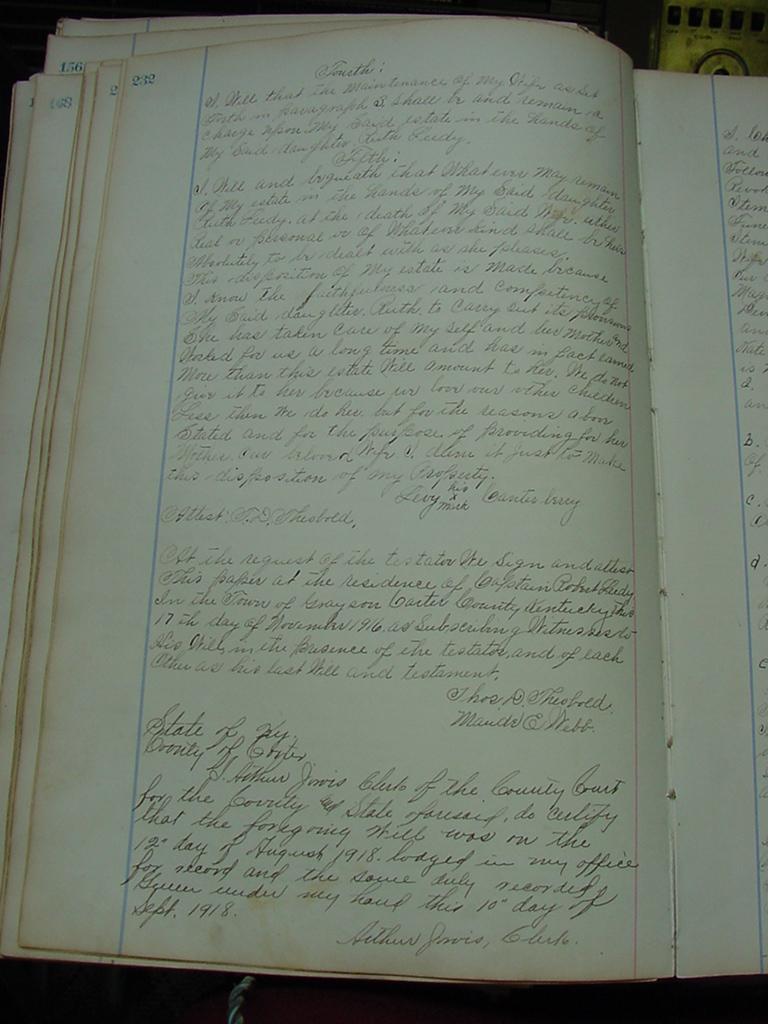 156
168
2
232
Fourth:
I. Will that the Maintenance of My Wife as set
forth in paragraph 2 shall be and remain a
Charge upon My said estate in the hands of
My Said daughter Ruth Leedy.
Fifth:
I. Will and bequeath that Whatever May remain
Of My estate in the hands of My Said daughter
Ruth Leedy. at the death of My Said Wife. either
Real or personal or of Whatever kind shall be hers
Absolutely to be dealt with as she pleases.
This disposition of My estate is Made because
I. know the faithfulness and Competency of
My Said daughter. Ruth. to Carry out its provisions
She has taken Care of My Self and her Mother and
Worked for us a long time and has in fact earned
More than this estate Will amount to her. We do not
give it to her because we love our other Children
Less then We do her. but for the reasons above
Stated and for the purpose of Providing for her
Mother. our beloved Wife I. deem it just to Make
this disposition of my Property.
Levy his x mark Canterberry
Attest: T.D. Theobold.
At the request of the testator We Sign and attest
This paper at the residence of Captain Robert Leedy
In the Town of Grayson Carter County Kentucky this
17th day of November 1916. as Subscribing Witnesses to
His Will, in the Presence of the testator, and of each
Other as his last Will and testament.
Thos D. Theobold.
Maude E. Webb.
State of Ky.
County of Carter
I, Arthur Jarvis Clerk of the County Court
for the County and State aforesaid, do certify
that the foregoing Will was on the
12" day of August, 1918. lodged in my office
for record and the same duly recorded
Given under my hand this 10" day of
Sept. 1918.
Arthur Jarvis, Clerk.
and
d.
b.
c.
d.